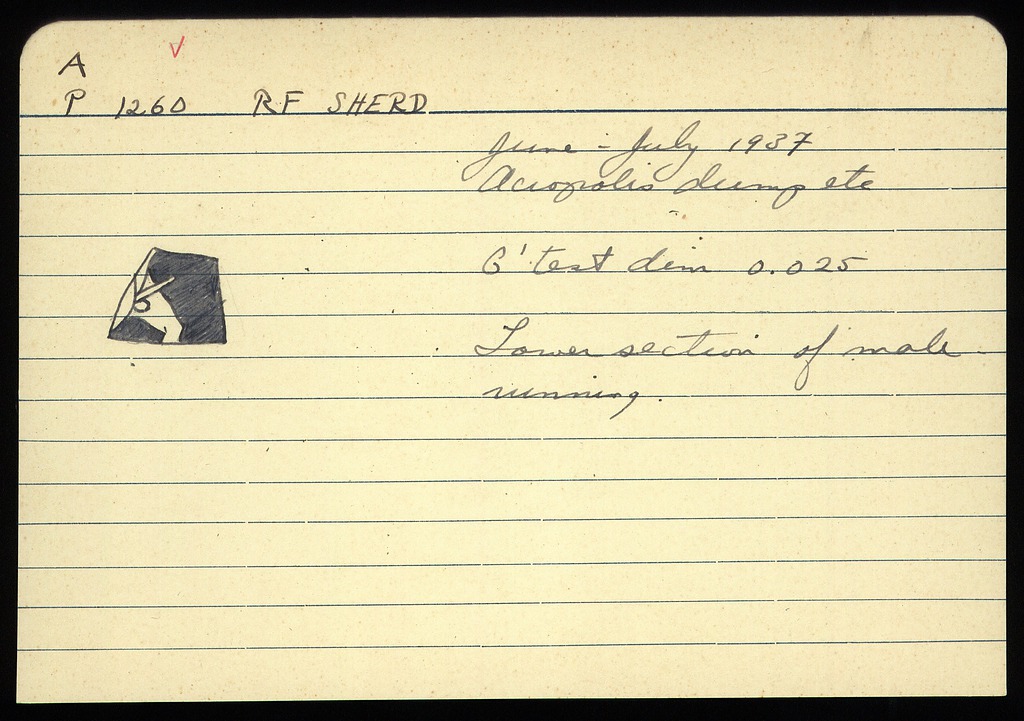 A
P 1260 RF SHERD
June - July 1937
Acropolis dump etc
G' test dim 0.025
Lower section of male
running.